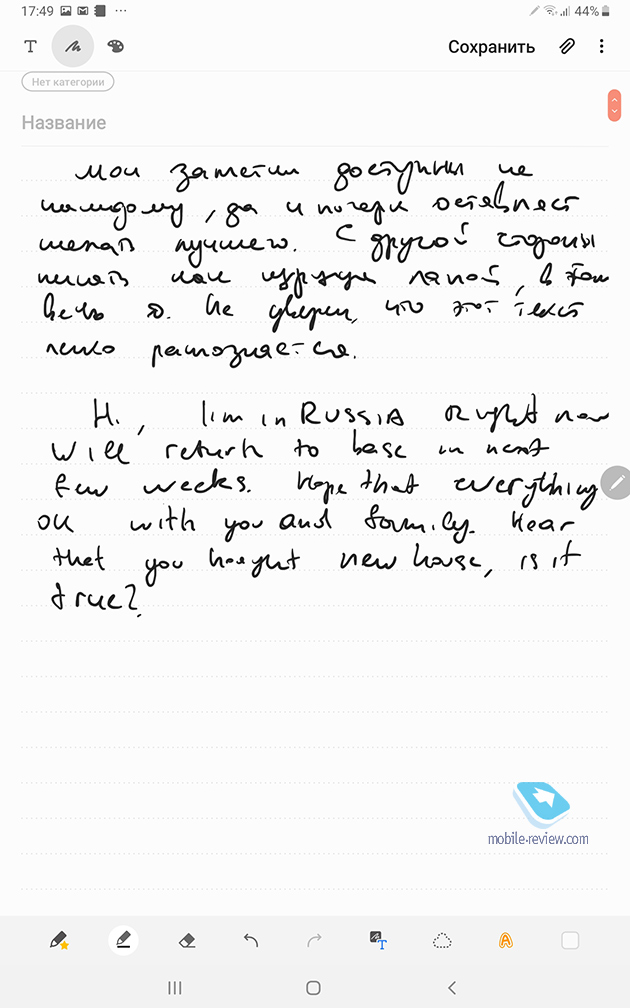 17:49
44%
T
Сохранить
Нет категории
Название
мои заметки доступны не
каждому, да и почерк оставляет
желать лучшего. С другой стороны
писать как курица лапой, в этом
весь я. Не уверен, что этот текст
легко распознается.
Hi, I im in RUSSIA right now
Will return to base in next
few weeks. Hope that everything
OK with you and family. Hear
that you bought new house, is it
true?
mobile-review.com
T
A